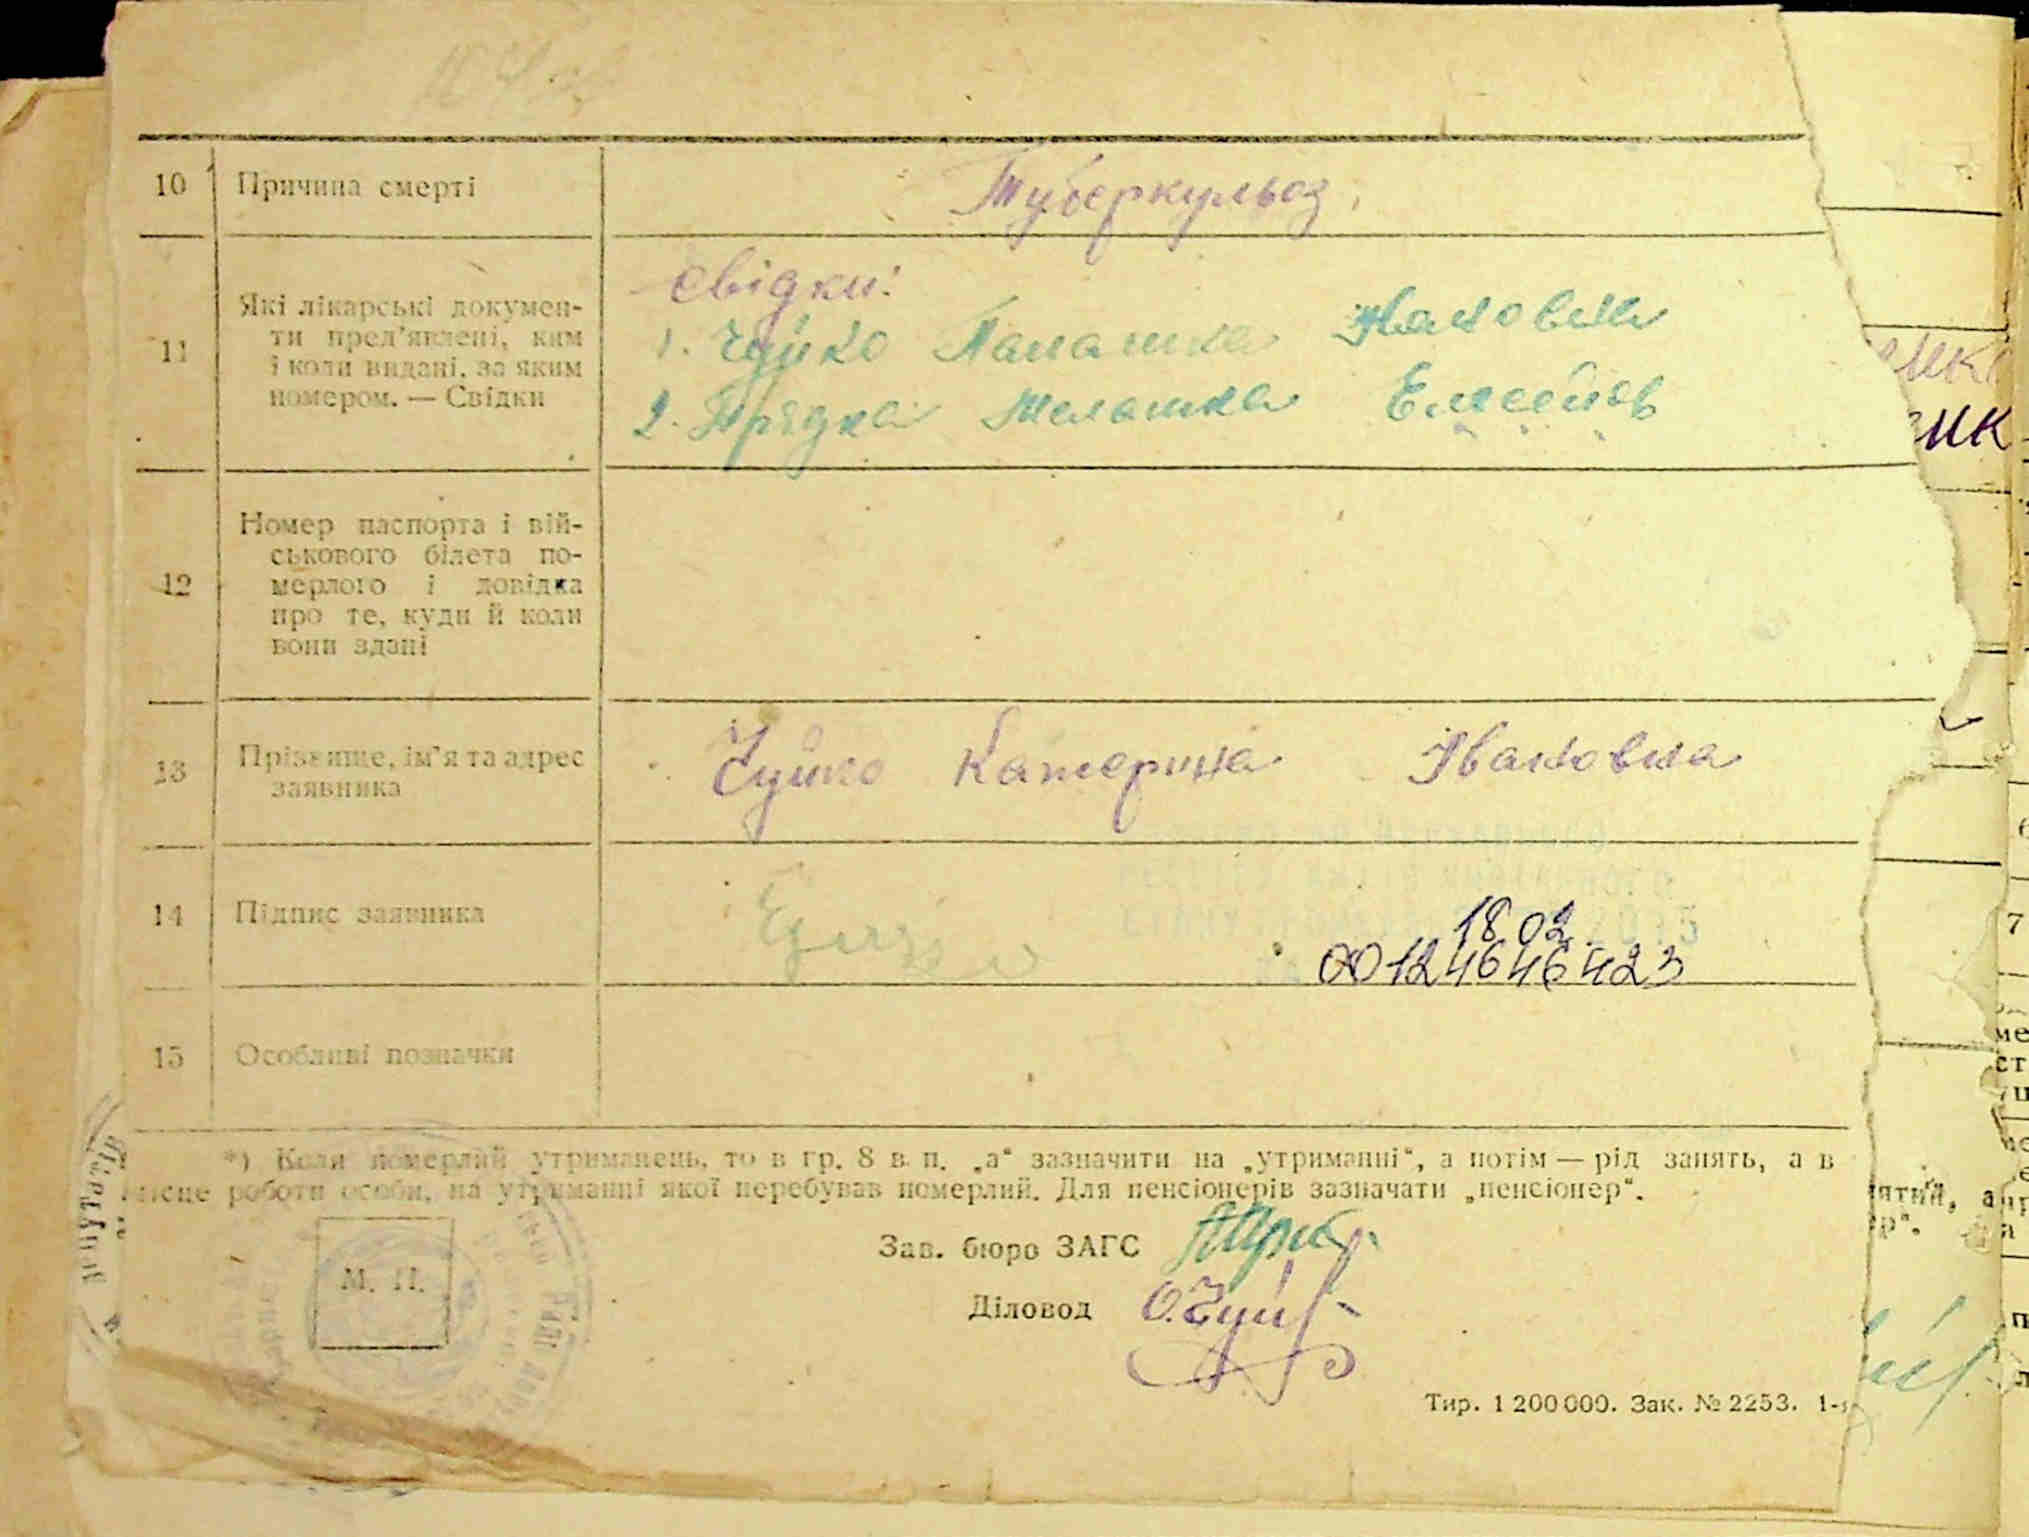 10 Причина смерті Туберкульоз
11 Які лікарські докумен-
ти пред'явлені, ким
і коли видані, за яким
номером. — Свідки
Свідки:
1. Чуйко Палашка Ивановна
2. Прядка Мелашка Елисейов
12 Номер паспорта і вій-
ськового білета по-
мерлого і довідка
про те, куди й коли
вони здані
13 Прізвище, ім'я та адрес
заявника
Чуйко Катерина Ивановна
14 Підпис заявника
18 02
00124646423
15 Особливі позначки
*) Коли померлий утриманець, то в гр. 8 в. п. „а“ зазначити на „утриманні“, а потім — рід занять, а в
місце роботи особи, на утриманні якої перебував померлий. Для пенсіонерів зазначати „пенсіонер“.
М. П.
Зав. бюро ЗАГС
Діловод О.Чуй
Тир. 1 200 000. Зак. № 2253. 1-